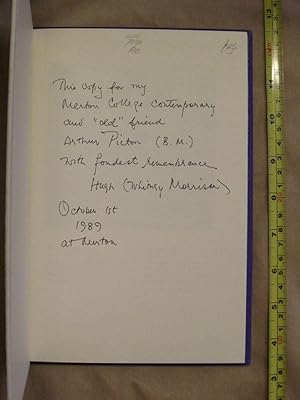 This copy for my
Merton College contemporary
and "old" friend
Arthur Picton (B.M.)
with fondest remembrance
Hugh (Whitney Morrison)
October 1st
1989
at Merton